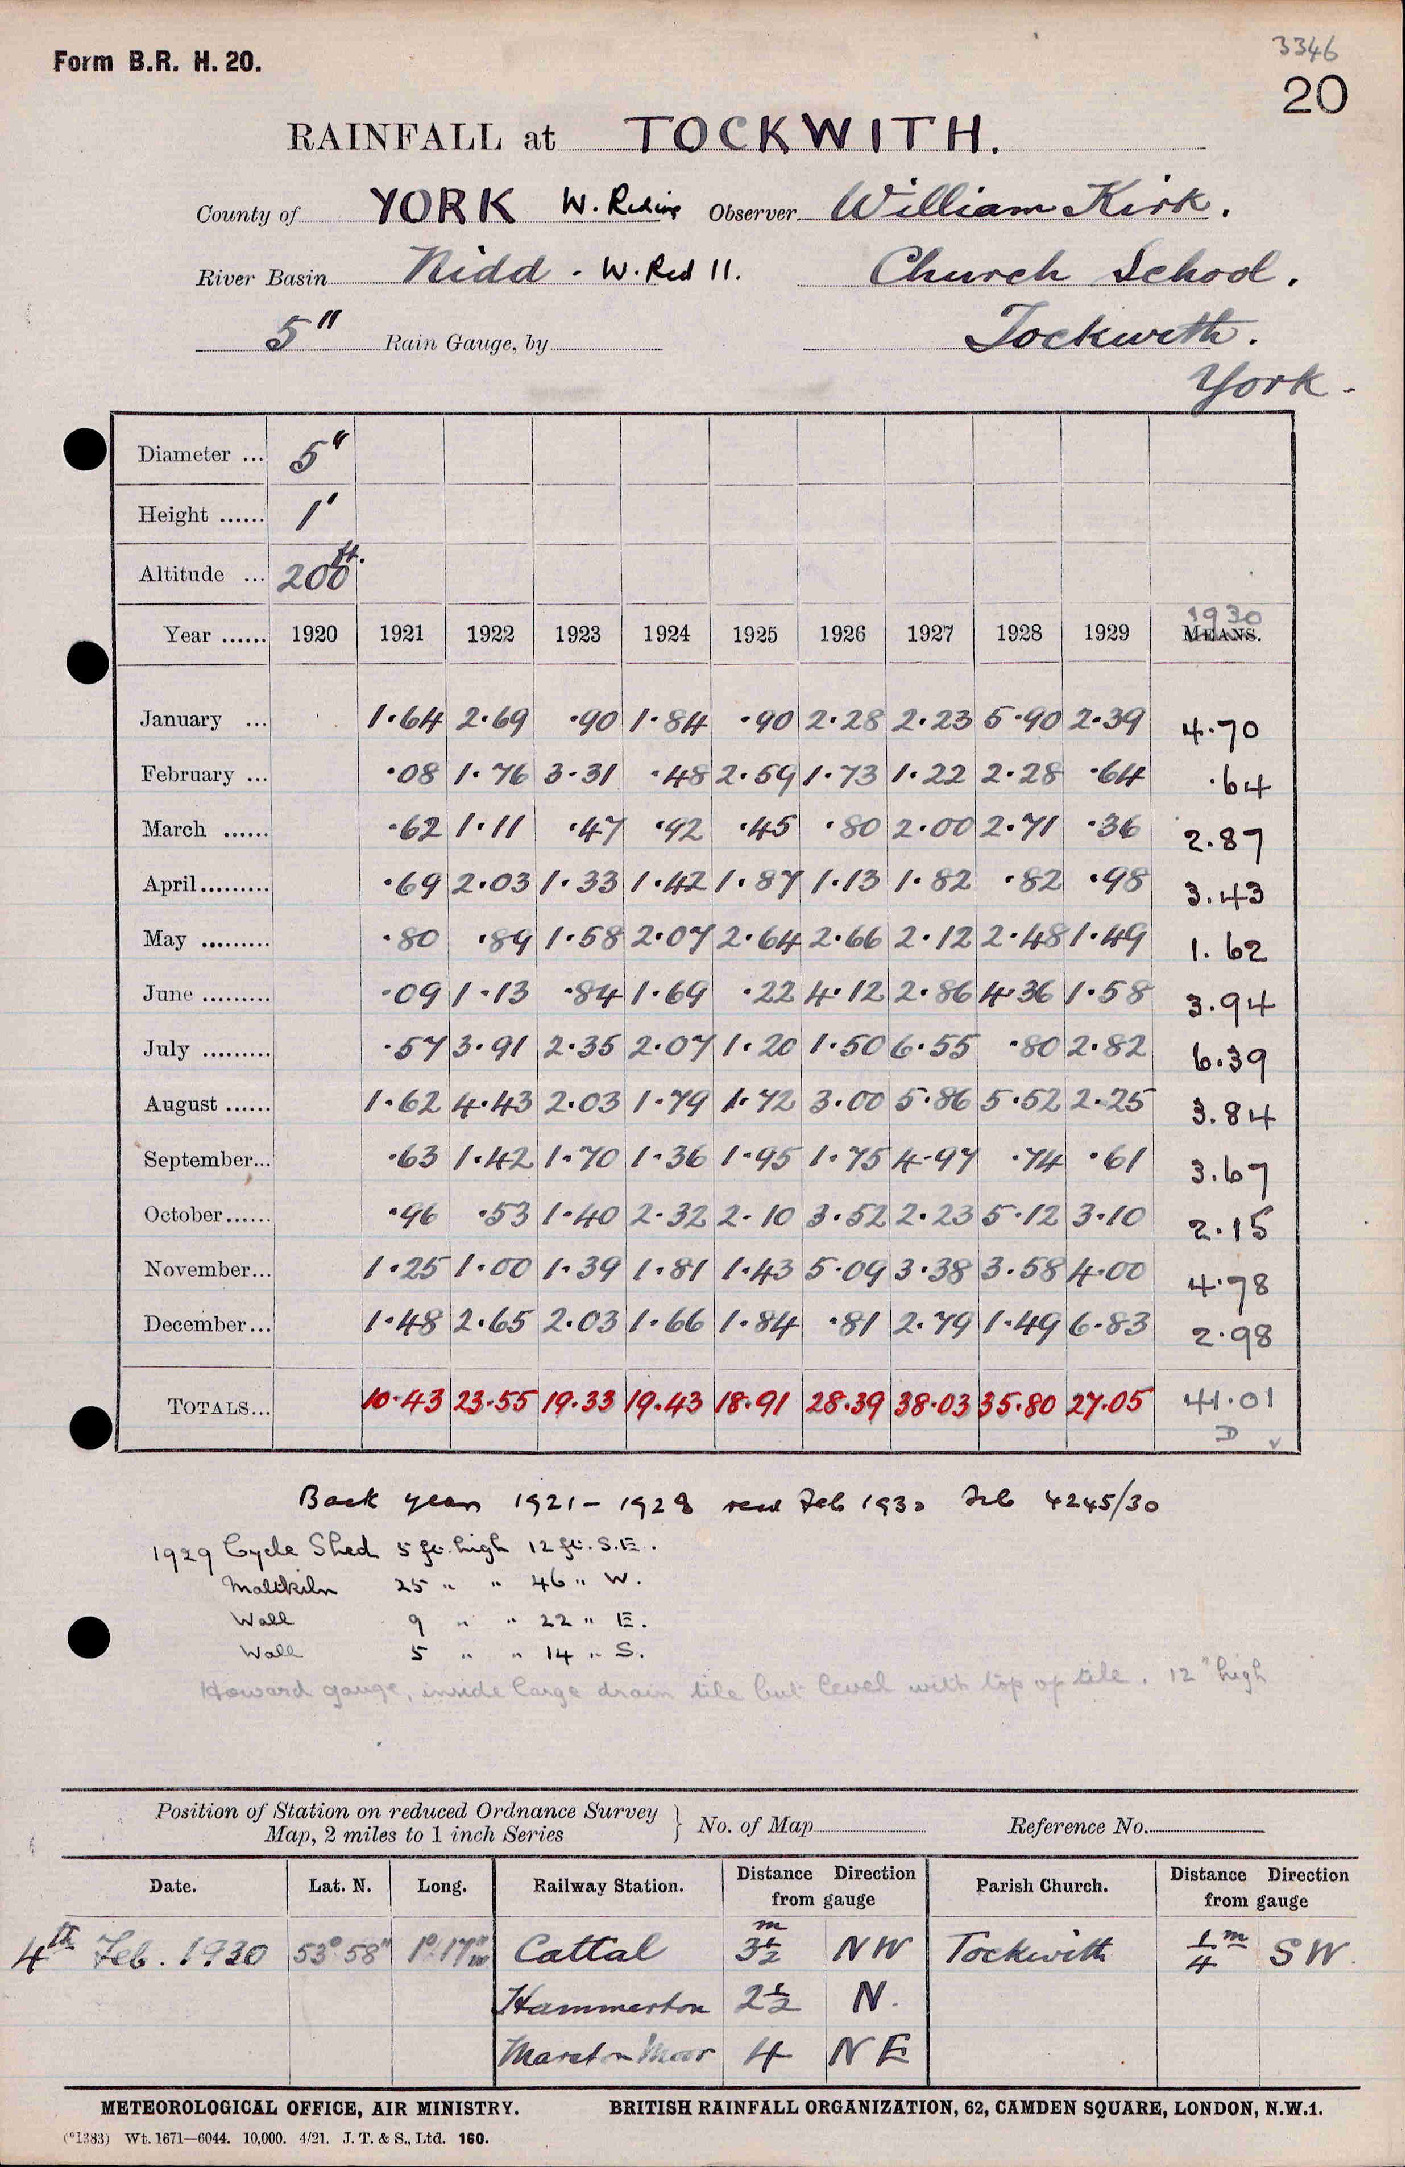 3346
Form B.R. H. 20.
20
RAINFALL at TOCKWITH.
County of YORK W. Riding Observer William Kirk.
River Basin Nidd - W. Rid 11. Church School.
5" Rain Gauge, by Tockwith.
York -
Diameter ... 5"
Height ...... 1'
Altitude ... 200 ft.
1930
Year ...... 1920 1921 1922 1923 1924 1925 1926 1927 1928 1929 MEANS.
January ... 1·64 2·69 ·90 1·84 ·90 2·28 2·23 5·90 2·39 4·70
February ... ·08 1·76 3·31 ·48 2·59 1·73 1·22 2·28 ·64 ·64
March ...... ·62 1·11 ·47 ·92 ·45 ·80 2·00 2·71 ·36 2·87
April......... ·69 2·03 1·33 1·42 1·87 1·13 1·82 ·82 ·98 3·43
May ......... ·80 ·89 1·58 2·07 2·64 2·66 2·12 2·48 1·49 1·62
June ......... ·09 1·13 ·84 1·69 ·22 4·12 2·86 4·36 1·58 3·94
July ......... ·57 3·91 2·35 2·07 1·20 1·50 6·55 ·80 2·82 6·39
August ...... 1·62 4·43 2·03 1·79 1·72 3·00 5·86 5·52 2·25 3·84
September... ·63 1·42 1·70 1·36 1·95 1·75 4·97 ·74 ·61 3·67
October...... ·96 ·53 1·40 2·32 2·10 3·52 2·23 5·12 3·10 2·15
November... 1·25 1·00 1·39 1·81 1·43 5·09 3·38 3·58 4·00 4·78
December... 1·48 2·65 2·03 1·66 1·84 ·81 2·79 1·49 6·83 2·98
TOTALS... 10·43 23·55 19·33 19·43 18·91 28·39 38·03 35·80 27·05 41·01
D v
Back years 1921 - 1928 recd Feb 1930 4245/30
1929 Cycle Shed 5 ft. high 12 ft. S.E.
Maltkiln 25 " " 46 " W.
Wall 9 " " 22 " E.
Wall 5 " " 14 " S.
Howard gauge, inside large drain tile but level with top of tile. 12" high
Position of Station on reduced Ordnance Survey Map, 2 miles to 1 inch Series } No. of Map Reference No.
Date. Lat. N. Long. Railway Station. Distance Direction from gauge Parish Church. Distance Direction from gauge
4th Feb. 1930 53° 58" 1° 17" W Cattal 3½ m NW Tockwith ¼ m SW.
Hammerton 2½ N.
Marston Moor 4 NE
METEOROLOGICAL OFFICE, AIR MINISTRY. BRITISH RAINFALL ORGANIZATION, 62, CAMDEN SQUARE, LONDON, N.W.1.
(*1383) Wt. 1671—6044. 10,000. 4/21. J. T. & S., Ltd. 160.